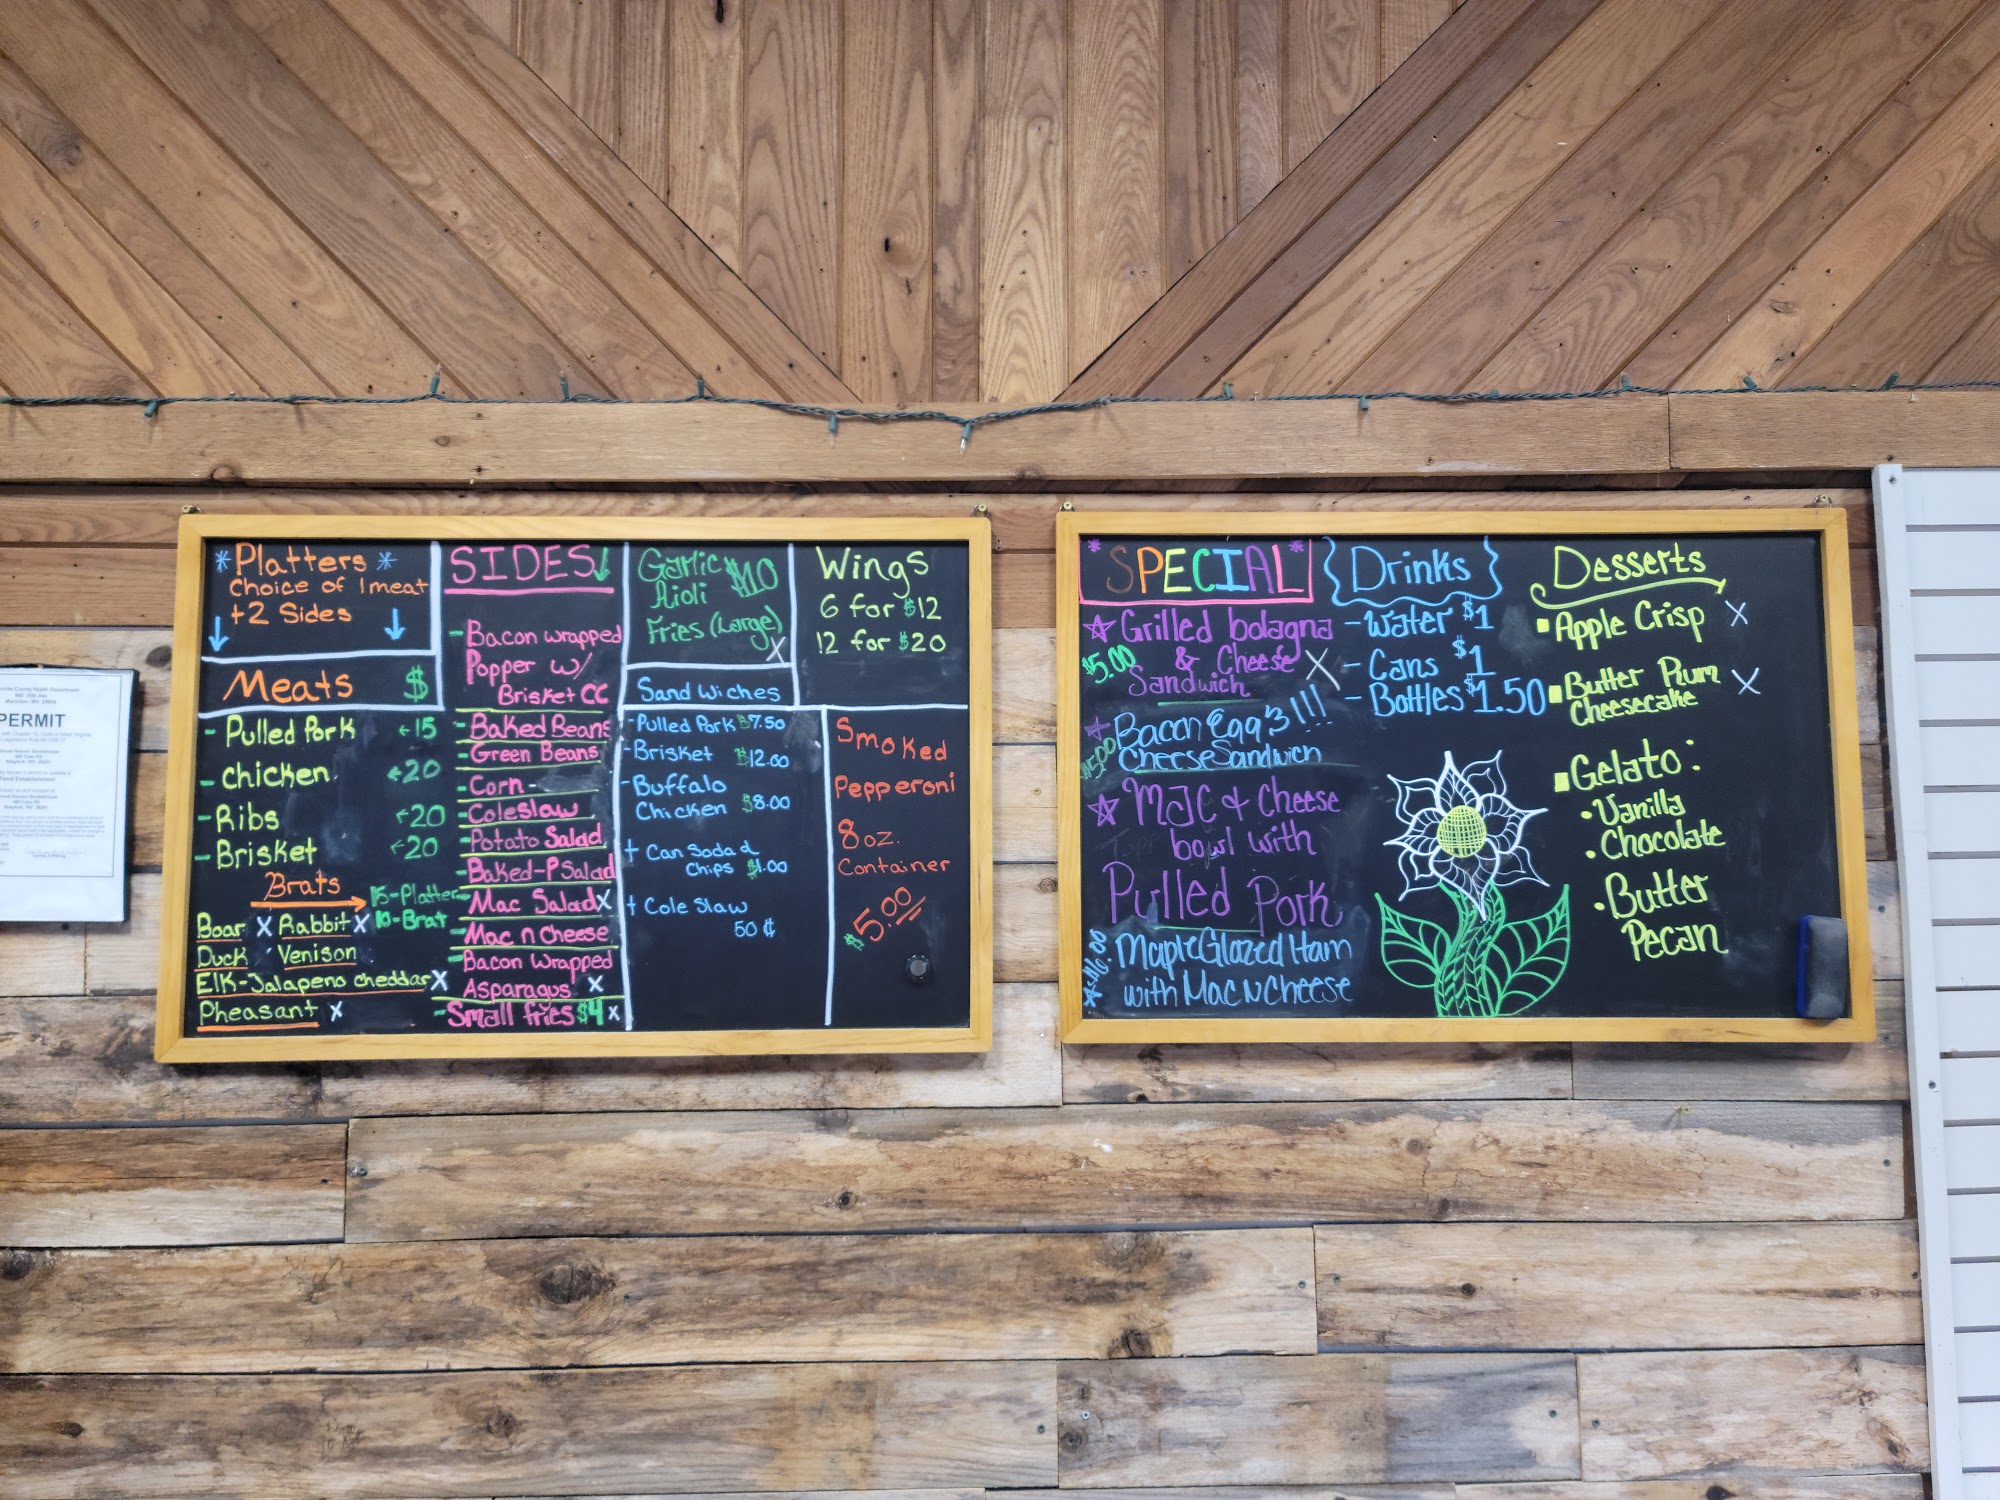 Monroe County Health Department
PERMIT
Food Establishment
*Platters*
Choice of 1 meat
+2 Sides
Meats $
- Pulled Pork ←15
- Chicken ←20
- Ribs ←20
- Brisket ←20
Brats 15-Platter
10-Brat
Boar X Rabbit X
Duck Venison
Elk-Jalapeno cheddar X
Pheasant X
SIDES↓
- Bacon wrapped
Popper w/
Brisket CC
- Baked Beans
- Green Beans
- Corn -
- Coleslaw
- Potato Salad
- Baked-P Salad
- Mac Salad X
- Mac n Cheese
- Bacon Wrapped
Asparagus X
- Small fries $4 X
Garlic $10
Aioli
Fries (Large)
X
Sandwiches
- Pulled Pork $7.50
- Brisket $12.00
- Buffalo
Chicken $8.00
+ Can Soda &
Chips $1.00
+ Cole Slaw
50 ¢
Wings
6 for $12
12 for $20
Smoked
Pepperoni
8 oz.
Container
$5.00
*SPECIAL*
Grilled bolagna
$5.00 & Cheese X
Sandwich
Bacon Egg &!!!
$5.00 Cheese Sandwich
Mac & Cheese
bowl with
Pulled Pork
Maple Glazed Ham
with Mac N Cheese
{Drinks}
- Water $1
- Cans $1
- Bottles $1.50
Desserts
Apple Crisp X
Butter Rum X
Cheesecake
Gelato:
• Vanilla
• Chocolate
• Butter
Pecan